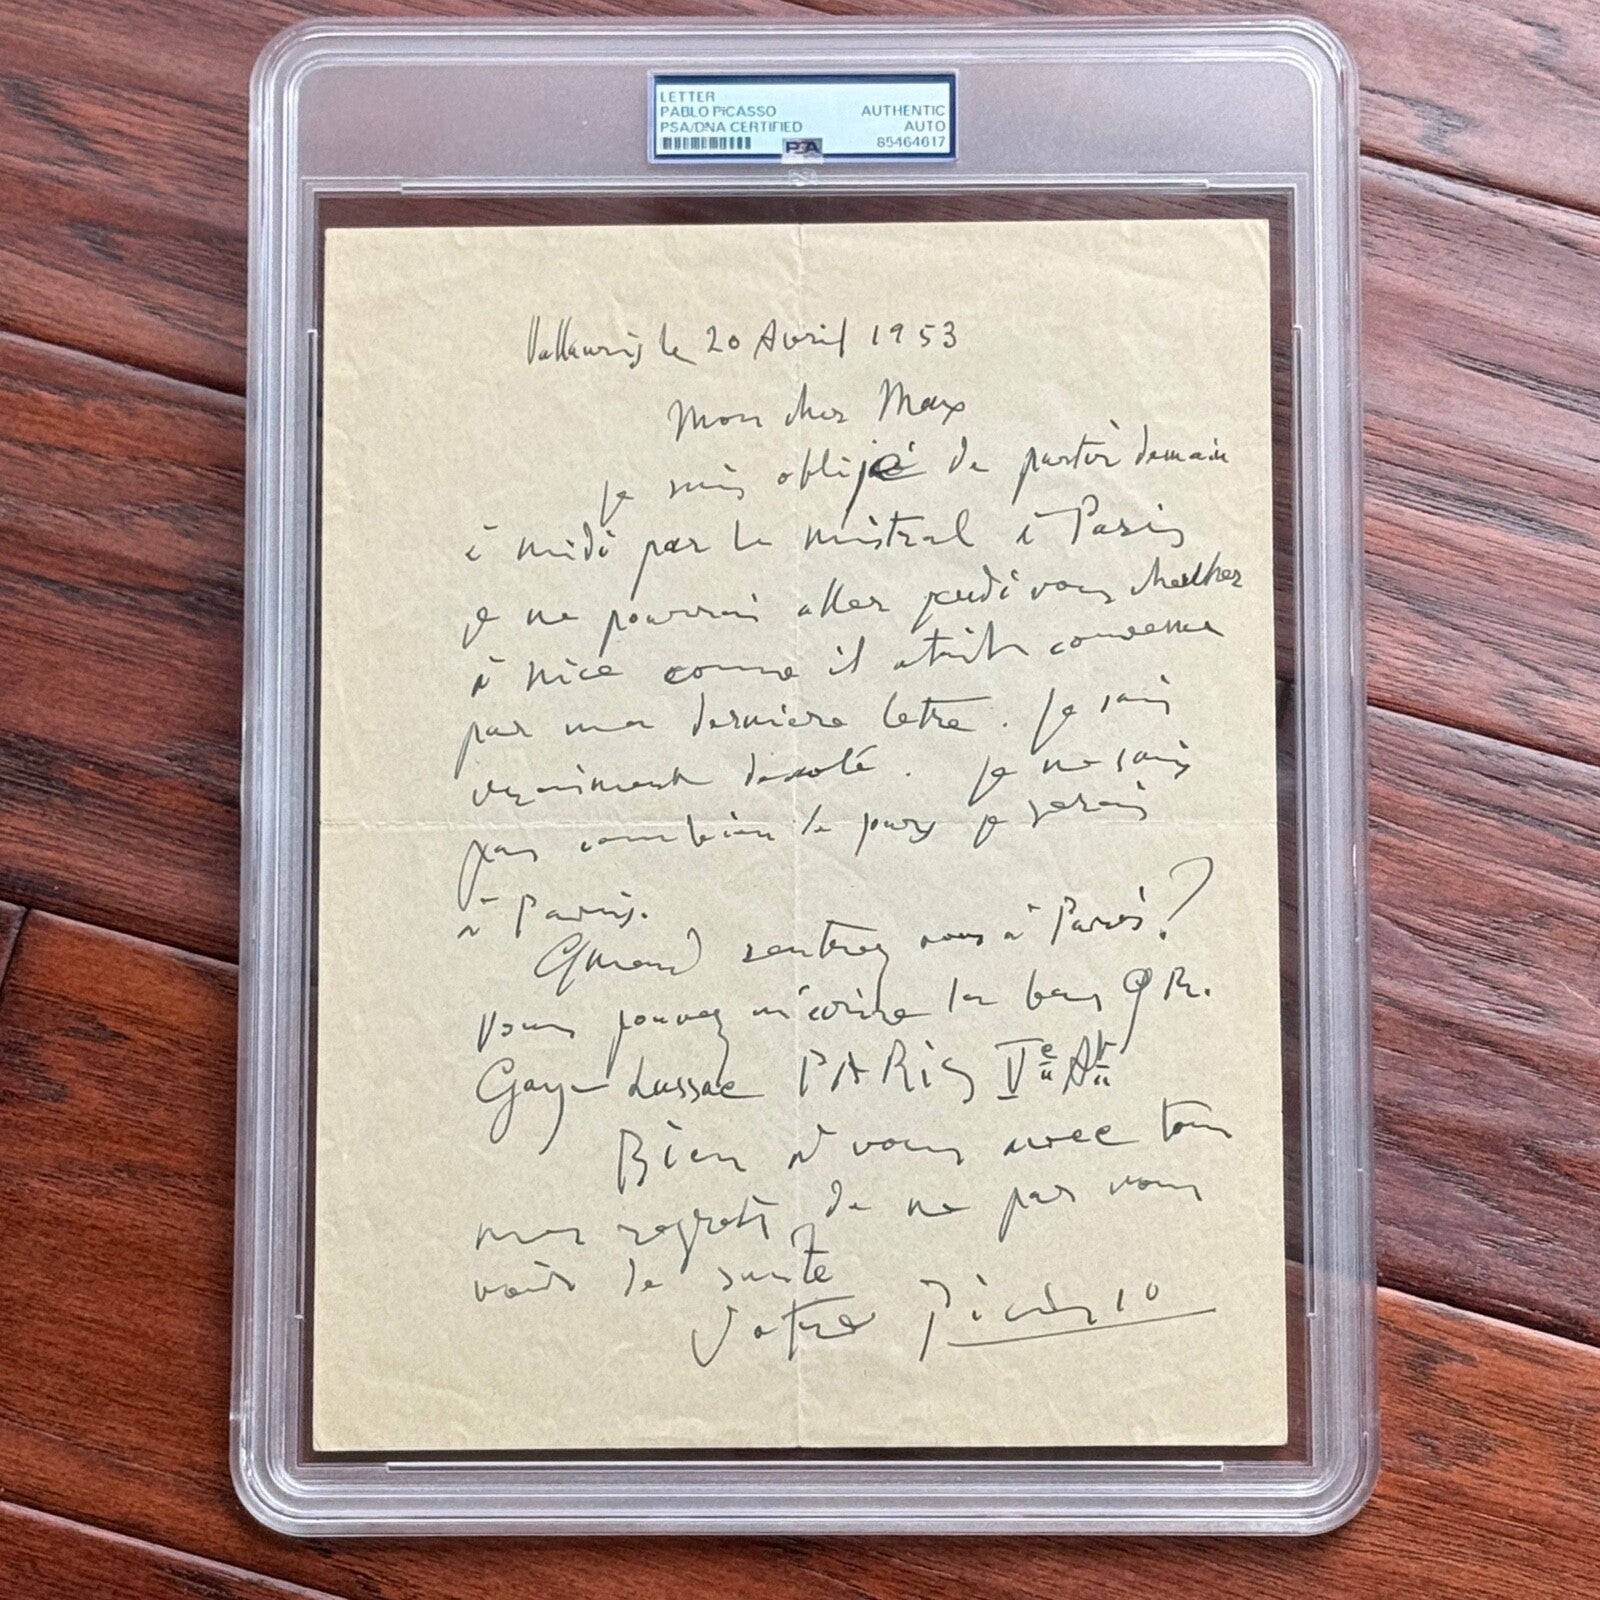 LETTER
PABLO PICASSO
PSA/DNA CERTIFIED
AUTHENTIC
AUTO
85464617
PSA
Vallauris le 20 Avril 1953
Mon cher Max
je suis oblijé de partir demain
à midi par le mistral à Paris
je ne pourrai aller jeudi vous chercher
à Nice come il etait convenu
par ma derniere letre. Je suis
vraiment desolé. je ne sais
pas combien de jours je serais
à Paris.
Quand rentrez vous à Paris?
Vous pouvez m'écrire là bas 9 R.
Gay-Lussac PARiS Ve At
Bien à vous avec tous
mes regrets de ne pas vous
voir de suite
Votre Picasso